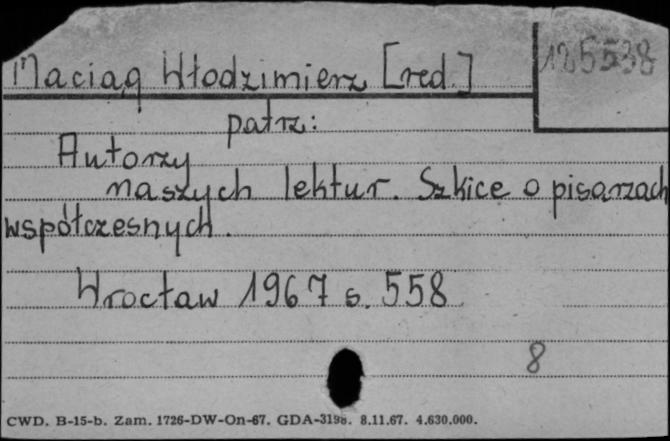 Maciąg Włodzimierz [red.]
125538
patrz:
Autorzy
naszych lektur. Szkice o pisarzach
współczesnych.
Wrocław 1967 s. 558
8
CWD. B-15-b. Zam. 1726-DW-On-67. GDA-3198. 8.11.67. 4.630.000.